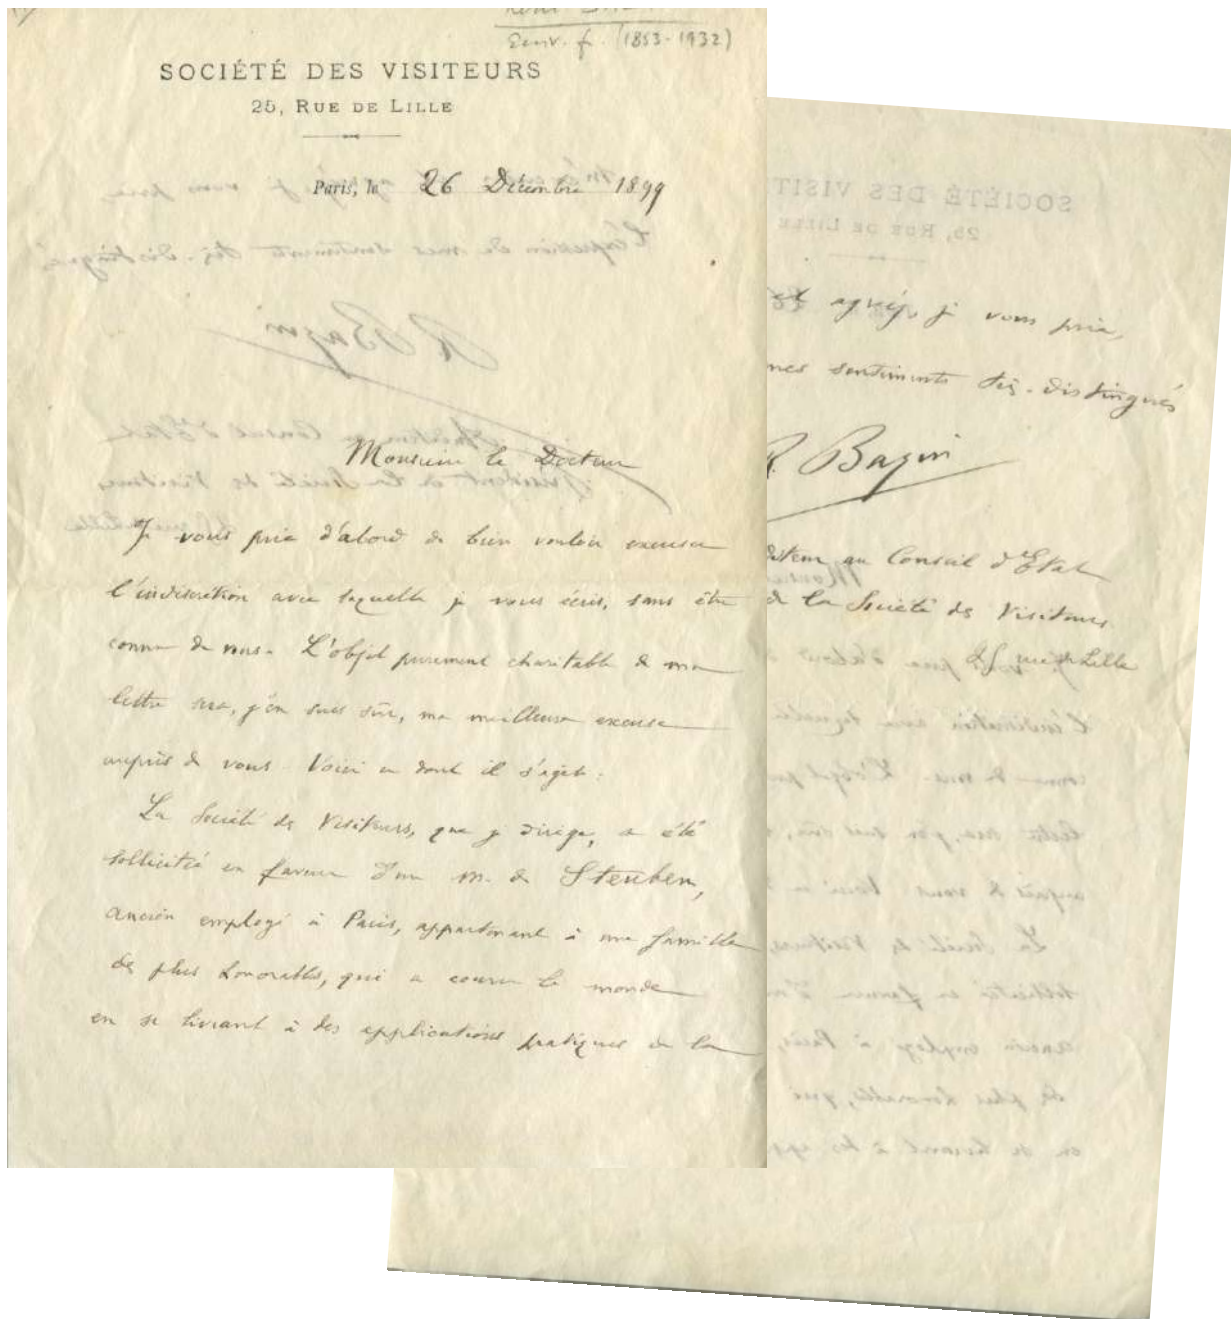 Ecriv. fr. (1853-1932)
SOCIÉTÉ DES VISITEURS
25, RUE DE LILLE
Paris, le 26 Décembre 1899
Monsieur le Docteur
Je vous prie d'abord de bien vouloir excuser
l'indiscrétion avec laquelle je vous écris, sans être
connu de vous. L'objet purement charitable de ma
lettre sera, j'en suis sûr, ma meilleure excuse
auprès de vous. Voici ce dont il s'agit :
La Société des Visiteurs, que je dirige, a été
sollicitée en faveur d'un M. de Steuben,
ancien employé à Paris, appartenant à une famille
des plus honorables, qui a couru le monde
en se livrant à des applications pratiques de la
et agréez, je vous prie,
mes sentiments très-distingués
R. Bazin
diteur au Conseil d'Etat
de la Société des Visiteurs
25 rue de Lille